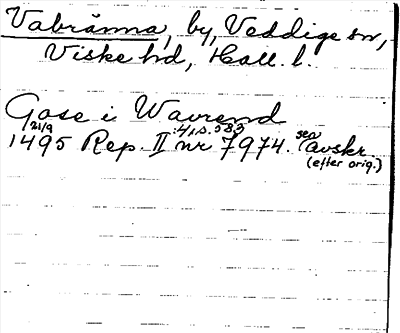 Vabränna, by, Veddige sn,
Viske hd, Hall. l.
Gose i Wavrend
21/9 :4, s. 583 sen
1495 Rep. II nr 7974. avskr.
(efter orig.)